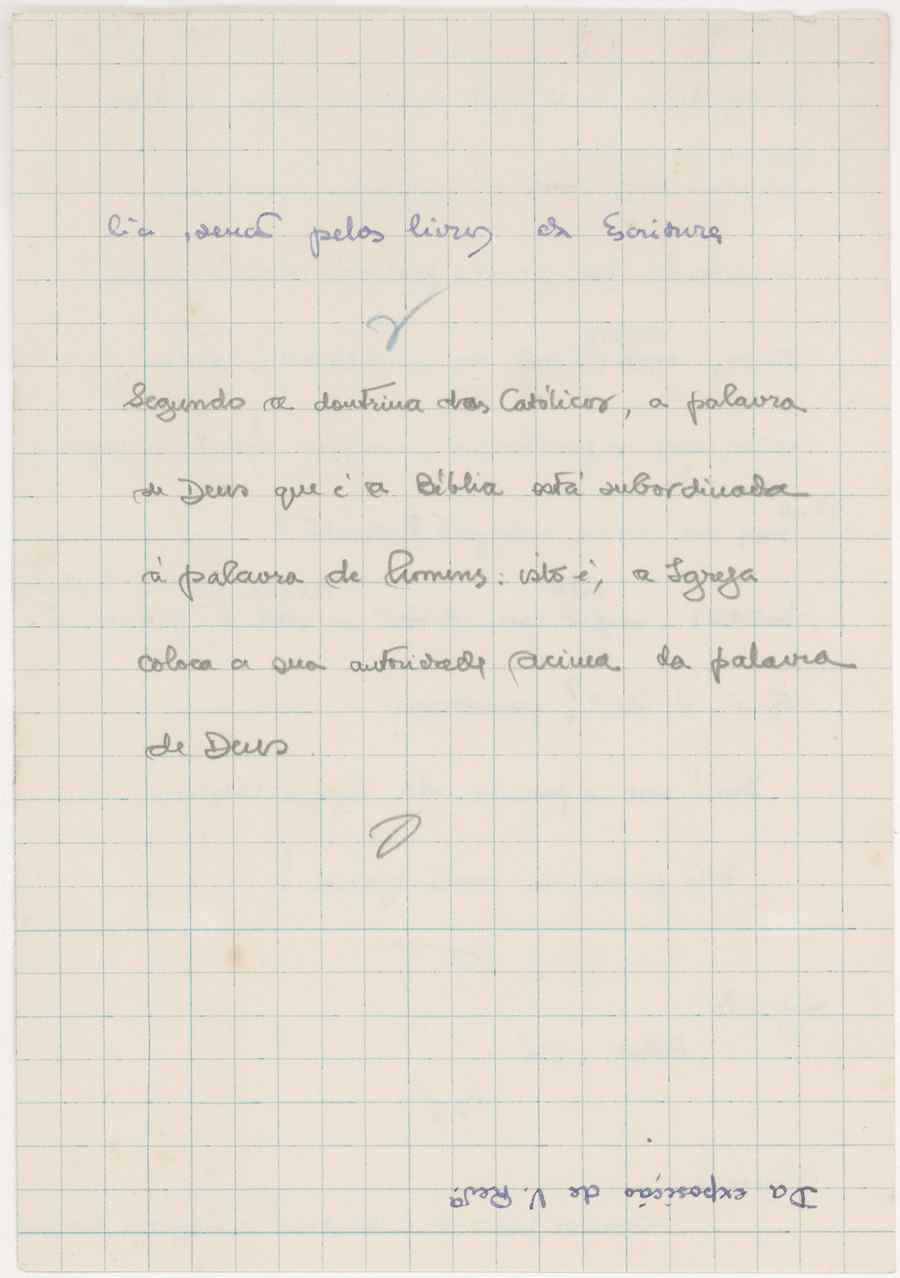 lia, senão pelos livros da Escritura
Segundo a doutrina dos Católicos, a palavra
de Deus que é a Bíblia está subordinada
à palavra de homens: isto é, a Igreja
coloca a sua autoridade acima da palavra
de Deus.
Da exposição de V. Revª.